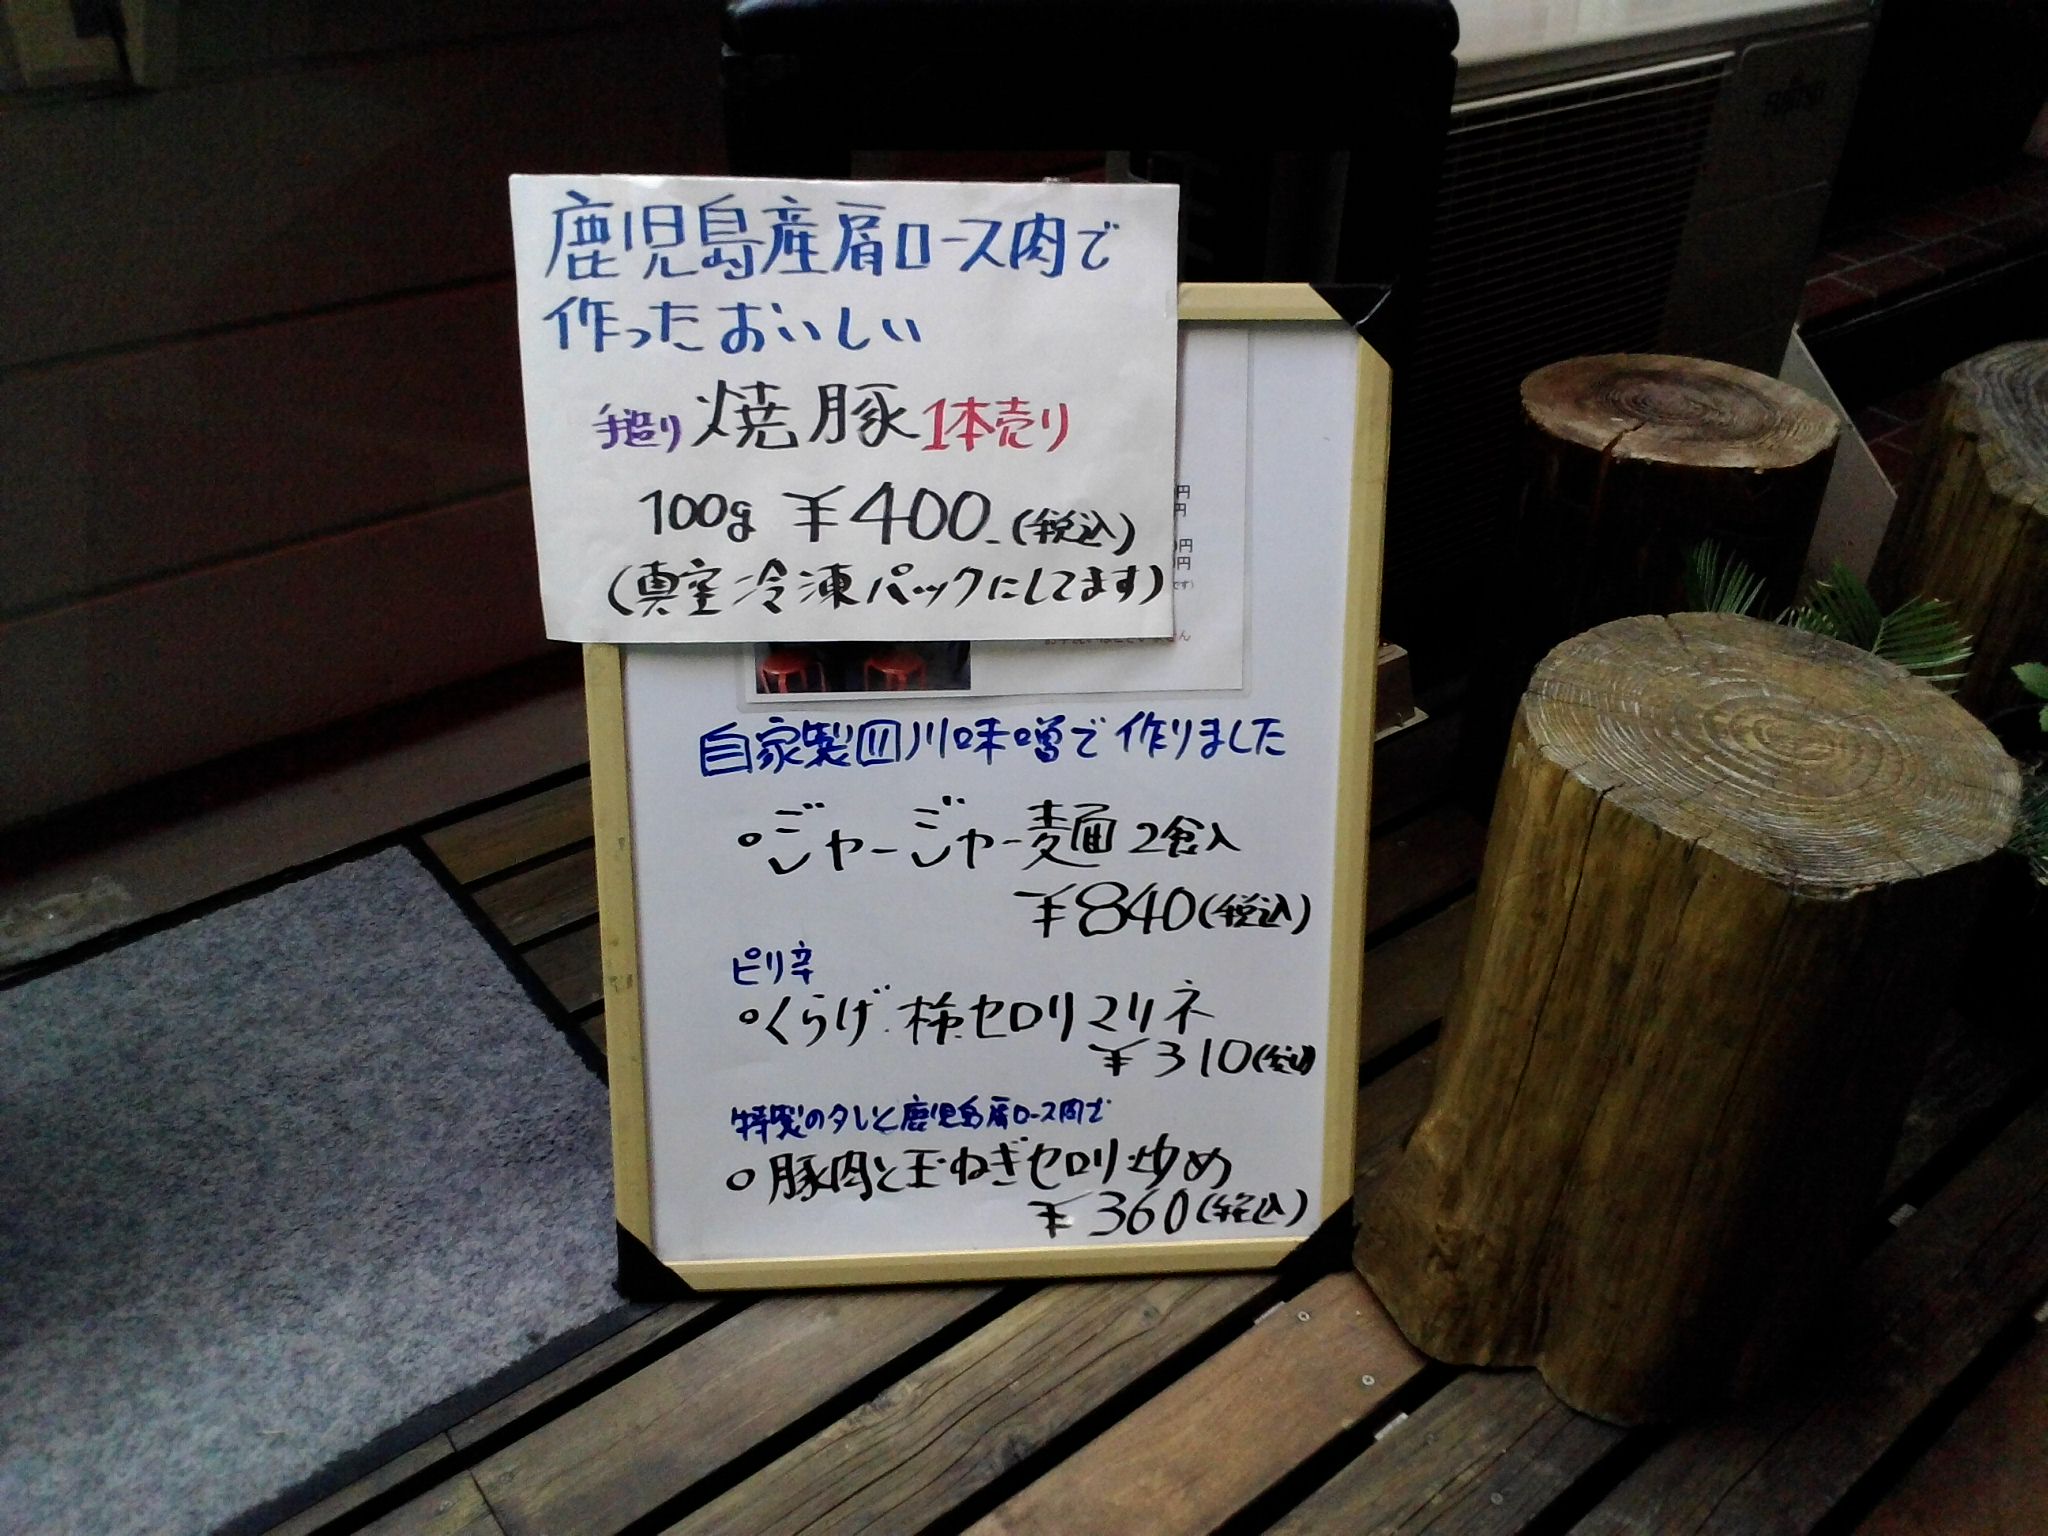 鹿児島産肩ロース肉で
作ったおいしい
手造り 焼豚 1本売り
100g ¥400-(税込)
(真空冷凍パックにしてます)
円
円
円
円
です)
自家製四川味噌で作りました
・ジャージャー麺 2食入
¥840(税込)
ピリ辛
・くらげ・柿・セロリマリネ
¥310(税込)
特製のタレと鹿児島肩ロース肉で
・豚肉と玉ねぎセロリ炒め
¥360(税込)